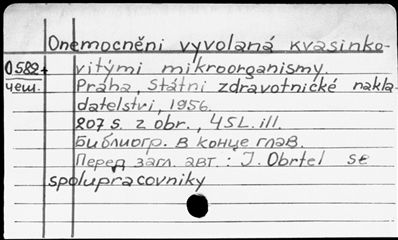 Onemocněni vyvolaná kvasinko-
0582 vitými mikroorganismy.
чеш. Praha, Státni zdravotnické nakla-
datelstvi, 1956.
207 s. z obr., 45 L. ill.
Библиогр. в конце глав.
Перед загл. авт.: J. Obrtel se
spolupracovniky